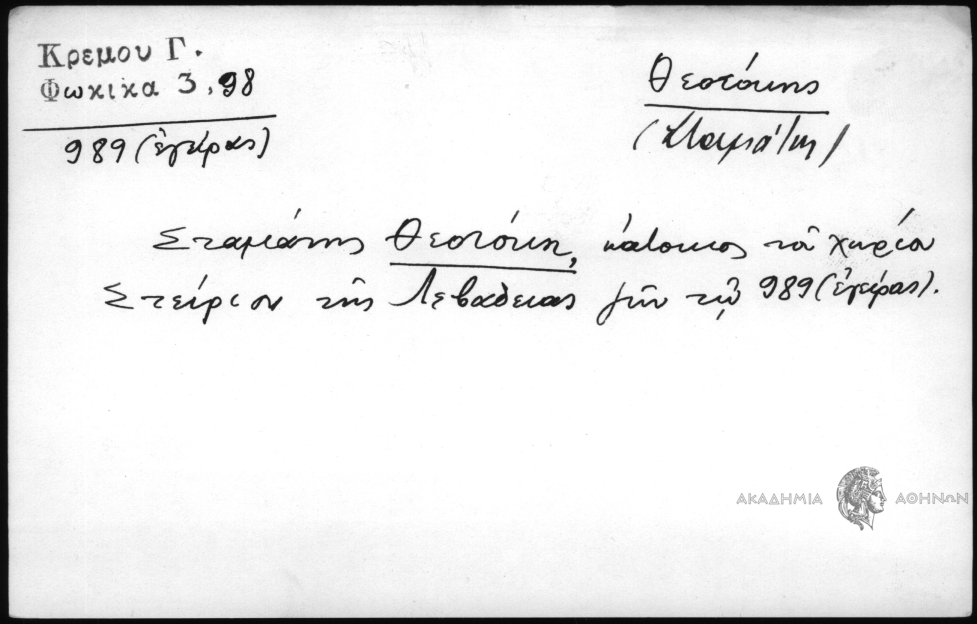 Κρεμου Γ.
Φωκικα 3,98
989 (ἐγείρας)
Θεοτόκης
(Σταμάτης)
Σταμάτης Θεοτόκη, κάτοικος τοῦ χωρίου
Στείριου τῆς Λεβαδειας ζῆν τῷ 989 (ἐγείρας).
ΑΚΑΔΗΜΙΑ ΑΘΗΝΩΝ